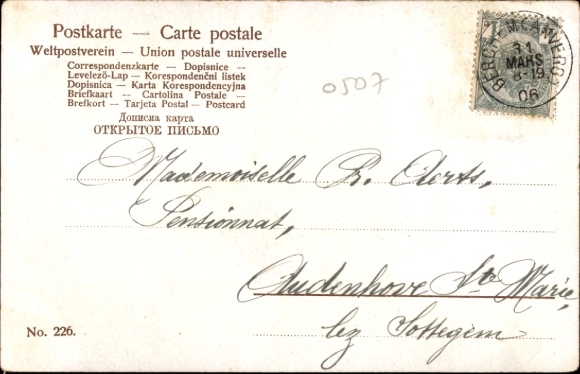 Postkarte — Carte postale
Weltpostverein — Union postale universelle
Correspondenzkarte — Dopisnice —
Levelező-Lap — Korespondenční listek
Dopisnica — Karta Korespondencyjna
Briefkaart — Cartolina Postale —
Brefkort — Tarjeta Postal — Postcard
Дописна карта
ОТКРЫТОЕ ПИСЬМО
0507
1
BERCHEM
31
MARS
8-19
06
Mademoiselle R. Aerts,
Pensionnat,
Audenhove Ste Marie,
lez Sottegem
No. 226.